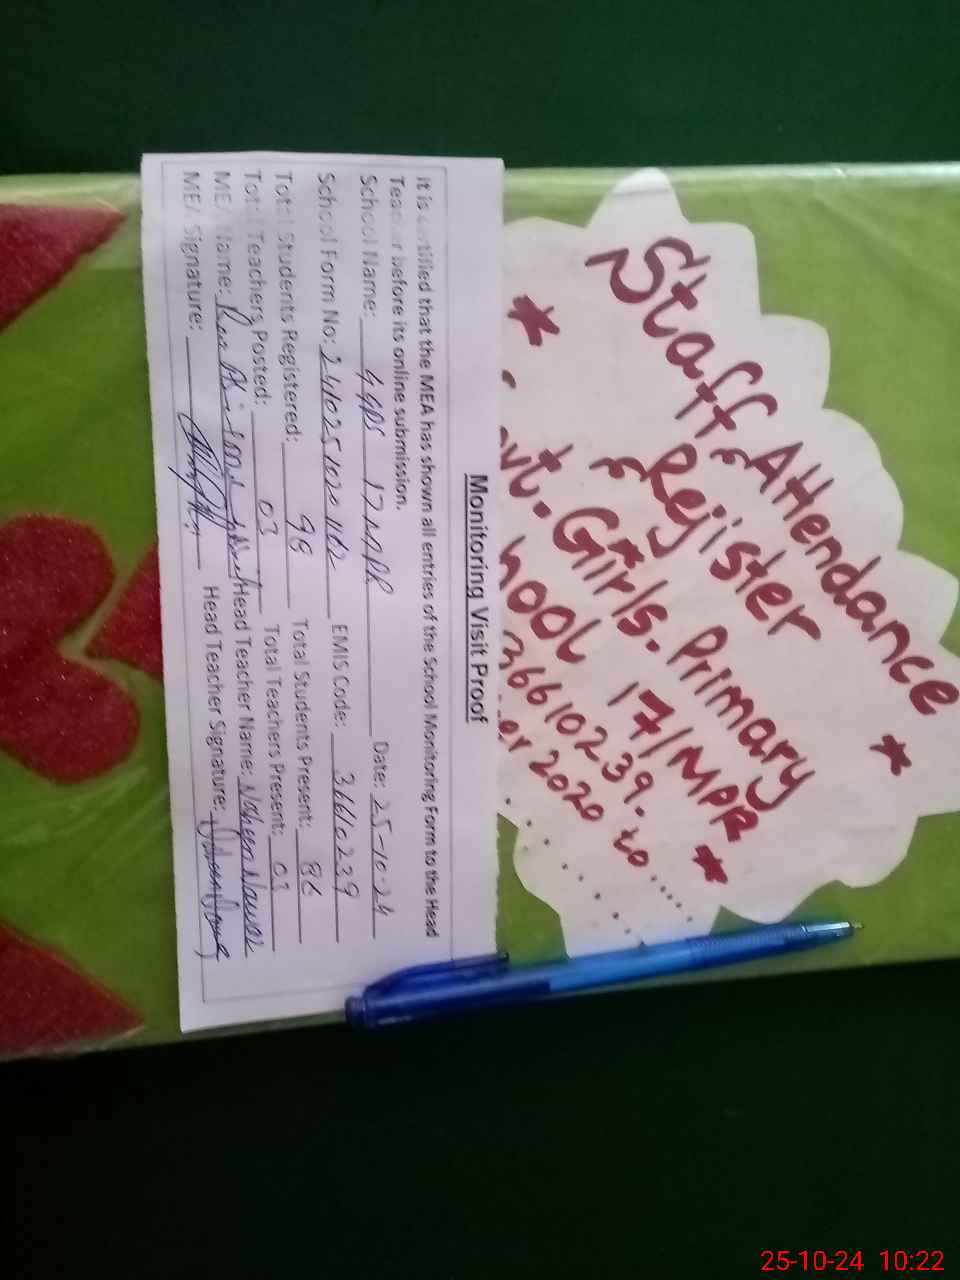 Monitoring Visit Proof
It is certified that the MEA has shown all entries of the School Monitoring Form to the Head
Teacher before its online submission.
School Name: GGPS 17 MPR Date: 25-10-24
School Form No: EMIS Code: 36610239
Total Students Registered: 98 Total Students Present: 86
Total Teachers Posted: 03 Total Teachers Present: 03
MEA Name: Head Teacher Name: Naheen Nawaz
MEA Signature: Head Teacher Signature:
Staff Attendance
Rejister
ovt. Girls. Primary
hool 17/MPR
36610239.
er 2020 to ......
25-10-24 10:22